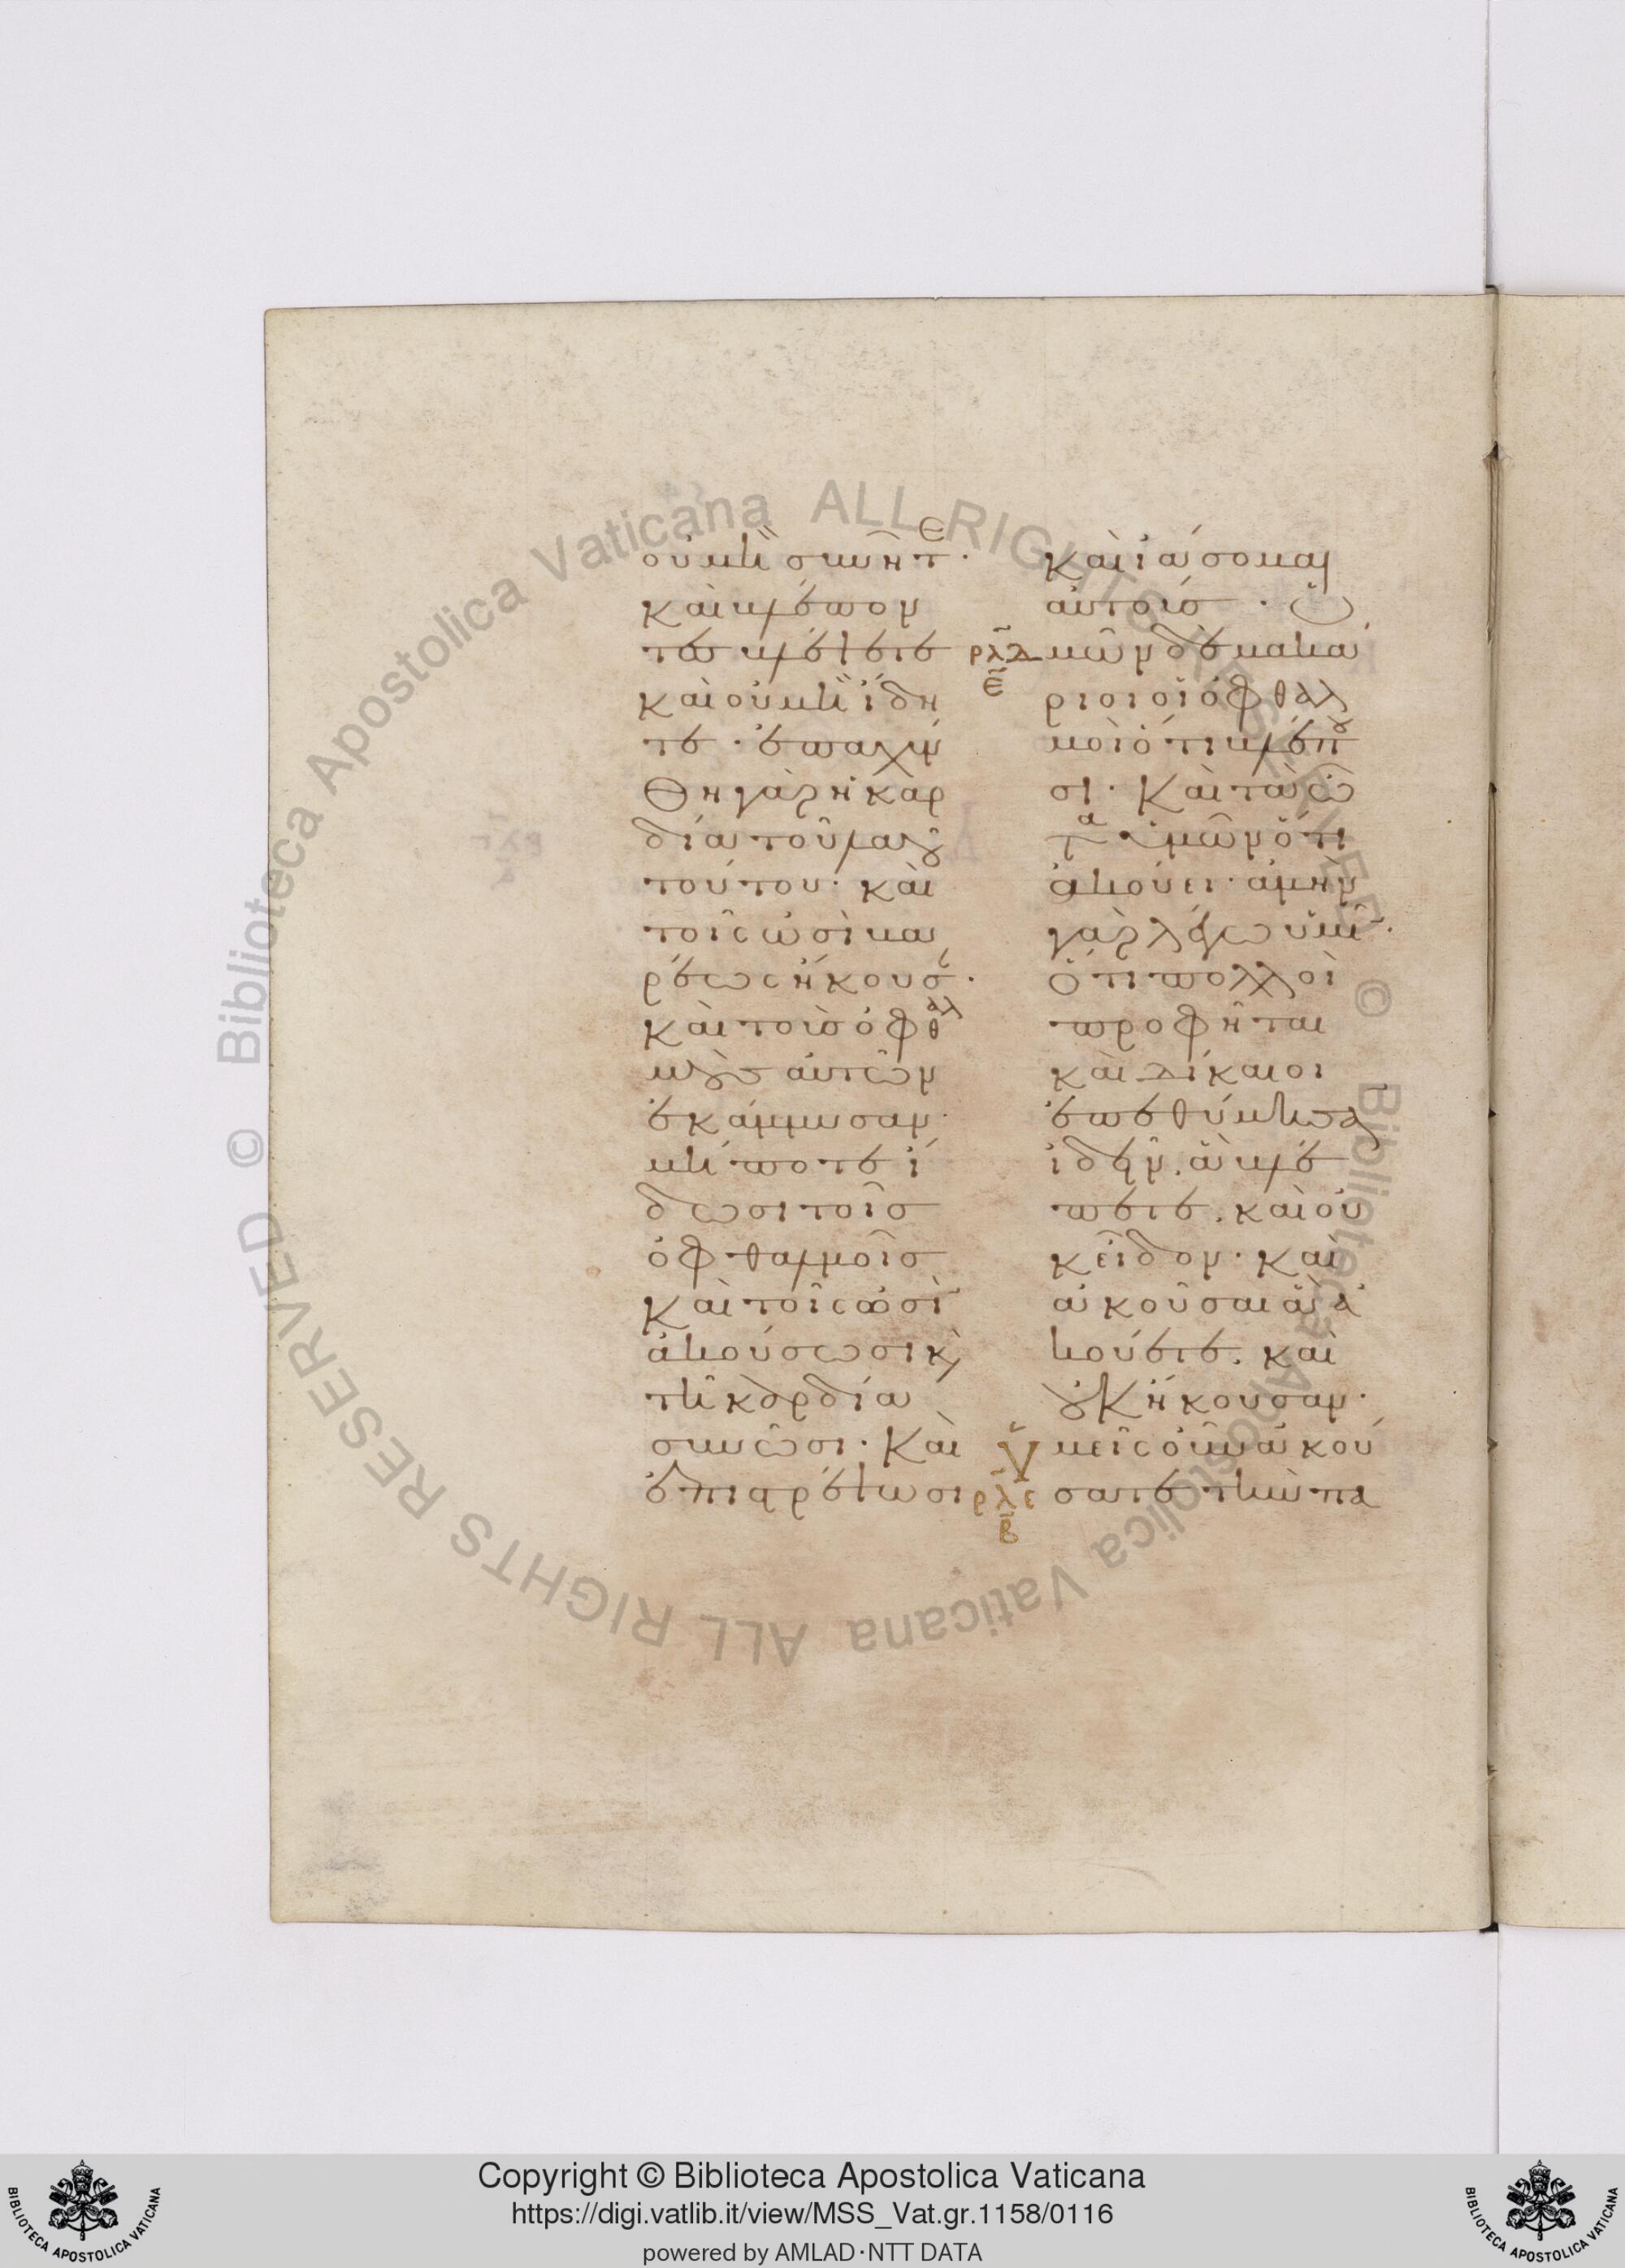 οὐ μὴ συνῆτε·
καὶ βλέπον
τες βλέψετε
καὶ οὐ μὴ ἴδη
τε· ἐπαχύν
θη γὰρ ἡ καρ
δία τοῦ λαοῦ
τούτου· καὶ
τοῖς ὠσὶ βα
ρέως ἤκουσαν·
καὶ τοὺς ὀφθαλ
μοὺς αὐτῶν
ἐκάμμυσαν·
μή ποτε ἴ
δωσι τοῖς
ὀφθαλμοῖς
καὶ τοῖς ὠσὶν
ἀκούσωσι κ(αὶ)
τῇ καρδίᾳ
συνῶσι· Καὶ
ἐπιστρέψωσι
καὶ ἰάσομαι
αὐτούς· ὑ
ρλδ μῶν δὲ μακά
ε
ριοι οἱ ὀφθαλ
μοὶ ὅτι βλέπου
σι· Καὶ τὰ ὦ
τα ὑμῶν ὅτι
ἀκούει· ἀμὴν
γὰρ λέγω ὑμῖν·
Ὅτι πολλοὶ
προφῆται
καὶ δίκαιοι
ἐπεθύμησα
ἰδεῖν. ἃ βλέ
πετε. καὶ οὐ
κ εἶδον· καὶ
ἀκοῦσαι ἃ ἀ
κούετε. καὶ
οὐκ ἤκουσαν·
Ὑμεῖς οὖν ἀκού
ρλε σατε τὴν πα
β
Copyright © Biblioteca Apostolica Vaticana
https://digi.vatlib.it/view/MSS_Vat.gr.1158/0116
powered by AMLAD·NTT DATA
BIBLIOTECA APOSTOLICA VATICANA
BIBLIOTECA APOSTOLICA VATICANA
© Biblioteca Apostolica Vaticana ALL RIGHTS RESERVED © Biblioteca Apostolica Vaticana ALL RIGHTS RESERVED